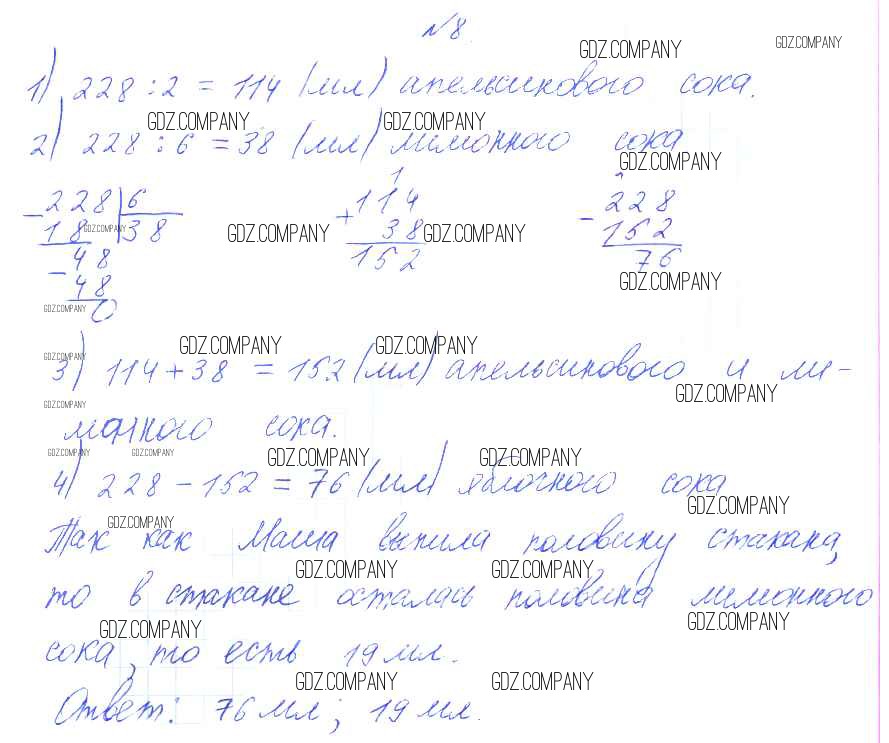 №8.
GDZ.COMPANY GDZ.COMPANY
1) 228 : 2 = 114 (мл) апельсинового сока.
GDZ.COMPANY GDZ.COMPANY
2) 228 : 6 = 38 (мл) лимонного сока
GDZ.COMPANY
228 | 6
- 18 | 38
GDZ.COMPANY
48
- 48
0
1
114
+ 38
152
228
- 152
76
GDZ.COMPANY GDZ.COMPANY
GDZ.COMPANY
GDZ.COMPANY
GDZ.COMPANY GDZ.COMPANY
GDZ.COMPANY
3) 114 + 38 = 152 (мл) апельсинового и ли-
GDZ.COMPANY
GDZ.COMPANY
монного сока.
GDZ.COMPANY GDZ.COMPANY GDZ.COMPANY GDZ.COMPANY
4) 228 - 152 = 76 (мл) яблочного сока
GDZ.COMPANY
GDZ.COMPANY
Так как Маша выпила половину стакана,
GDZ.COMPANY GDZ.COMPANY
то в стакане осталась половина лимонного
GDZ.COMPANY GDZ.COMPANY
сока, то есть 19 мл.
GDZ.COMPANY GDZ.COMPANY
Ответ: 76 мл; 19 мл.